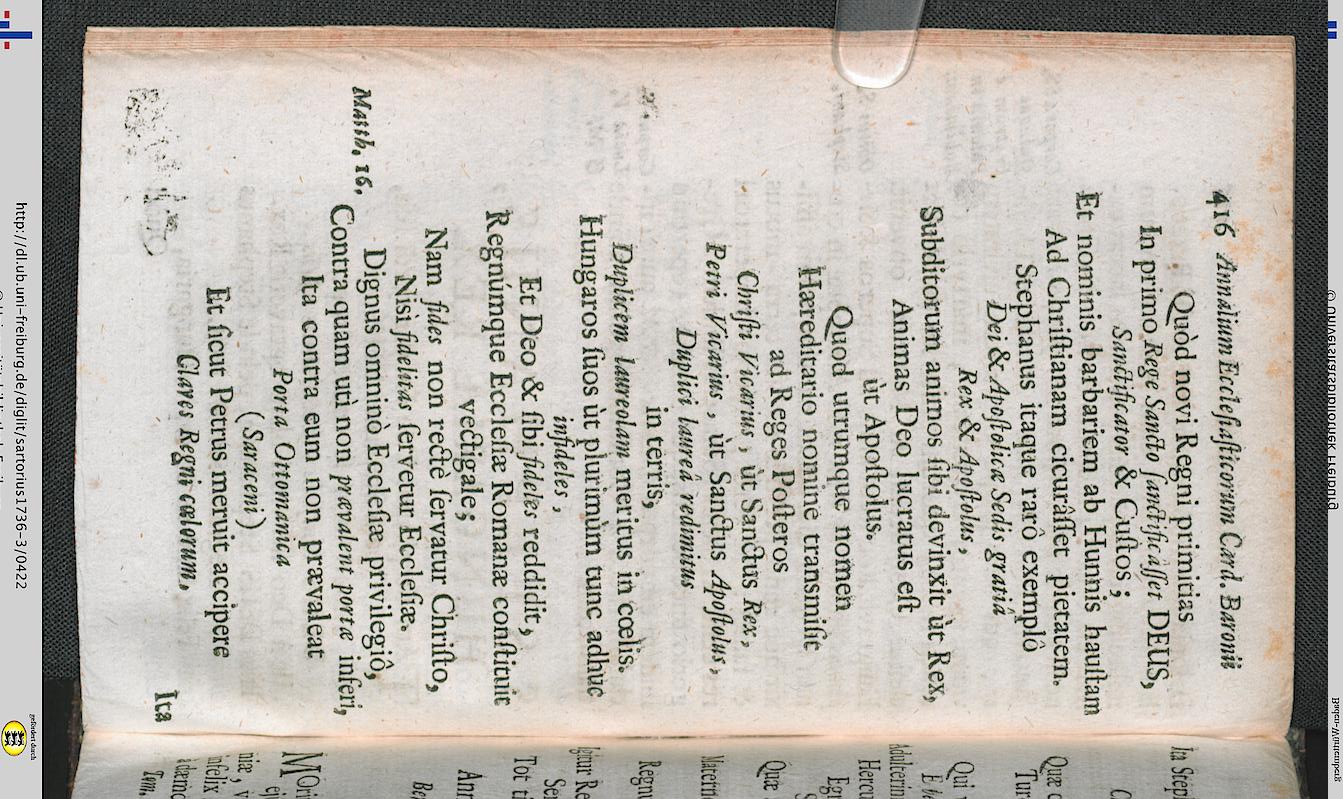 416 Annalium Ecclesiasticorum Card. Baronii
Quòd novi Regni primitias
In primo Rege Sancto sanctificâsset DEUS,
Sanctificator & Custos ;
Et nominis barbariem ab Hunnis haustam
Ad Christianam cicurâsset pietatem.
Stephanus itaque rarô exemplô
Dei & Apostolicæ Sedis gratiâ
Rex & Apostolus,
Subditorum animos sibi devinxit ùt Rex,
Animas Deo lucratus est
ùt Apostolus.
Quod utrumque nomen
Hæreditario nomine transmisit
ad Reges Posteros
Christi Vicarius, ùt Sanctus Rex,
Petri Vicarius, ùt Sanctus Apostolus,
Duplici laureâ redimitus
in terris,
Duplicem laureolam meritus in cœlis.
Hungaros suos ùt plurimùm tunc adhuc
infideles,
Et Deo & sibi fideles reddidit,
Regnúmque Ecclesiæ Romanæ constituit
vectigale;
Nam fides non rectè servatur Christo,
Nisì fidelitas servetur Ecclesiæ.
Dignus omninò Ecclesiæ privilegiô,
Matth. 16. Contra quam utì non prævalent portæ inferi,
Ita contra eum non prævaleat
Porta Ottomanica
(Saraceni)
Et sicut Petrus meruit accipere
Claves Regni cœlorum,
Ita
Ita Step
Quæ
Tur
Qui
Adulterin
Hercu
Egr
Quæ
Macerin
Regnu
Igitur Re
Ser
Tot ti
Ann
Be
Mori
ej
niæ, v
nfelix
Tom.
http://dl.ub.uni-freiburg.de/diglit/sartorius1736-3/0422
© Universitätsbibliothek Freiburg
gefördert durch